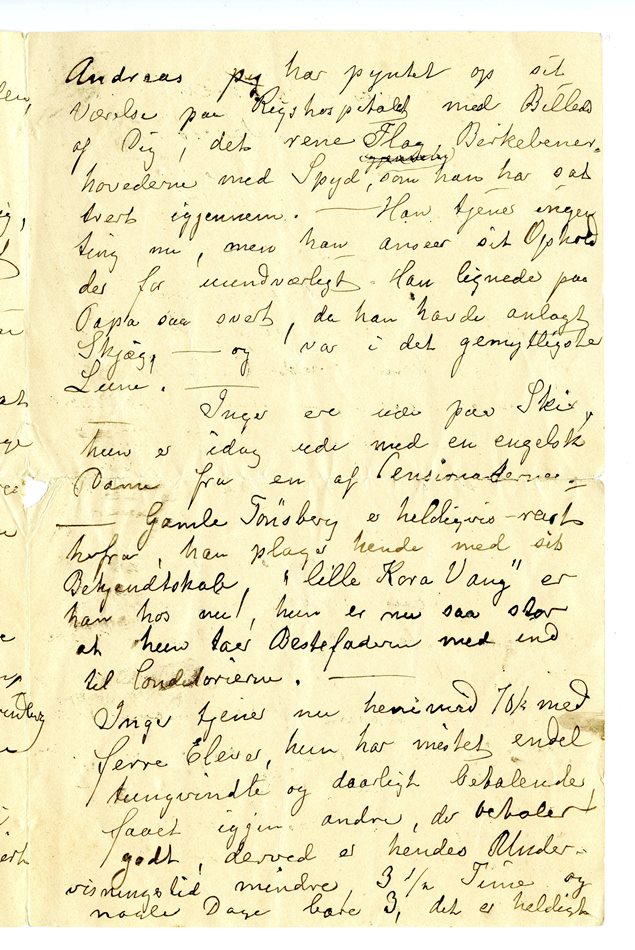 Andreas py har pyntet op sit
Værelse paa Rigshospitalet med Billeder
af Dig, det rene Flag, Birkebener-
hovederne med Spyd, som han har sat
tvert igjennem. — Han tjener ingen
ting nu, men han anseer sit Ophold
der for uundværligt. Han lignede paa
Papa saa svert, da han havde anlagt
Skjæg, — og var i det gemytligste
Lune. —
Inger ere ude paa Ski,
hun er idag ude med en engelsk
Dame fra en af Pensionaterne. —
— Gamle Tönsberg er heldigvis snart
herfra, han plager hende med sit
Bekjendtskab, "lille Kora Vang" er
han hos nu!, hun er nu saa stor
at hun taer Bestefaderen med ind
til Conditorierne. —
Inger tjener nu henimod 70k med
færre Elever, hun har mistet endel
tungvindte og daarligt betalende,
faaet igjen andre, der betaler
godt, derved er hendes Under-
visningstid mindre, 3 1/2 Time og
nogle Dage bare 3, det er heldigt